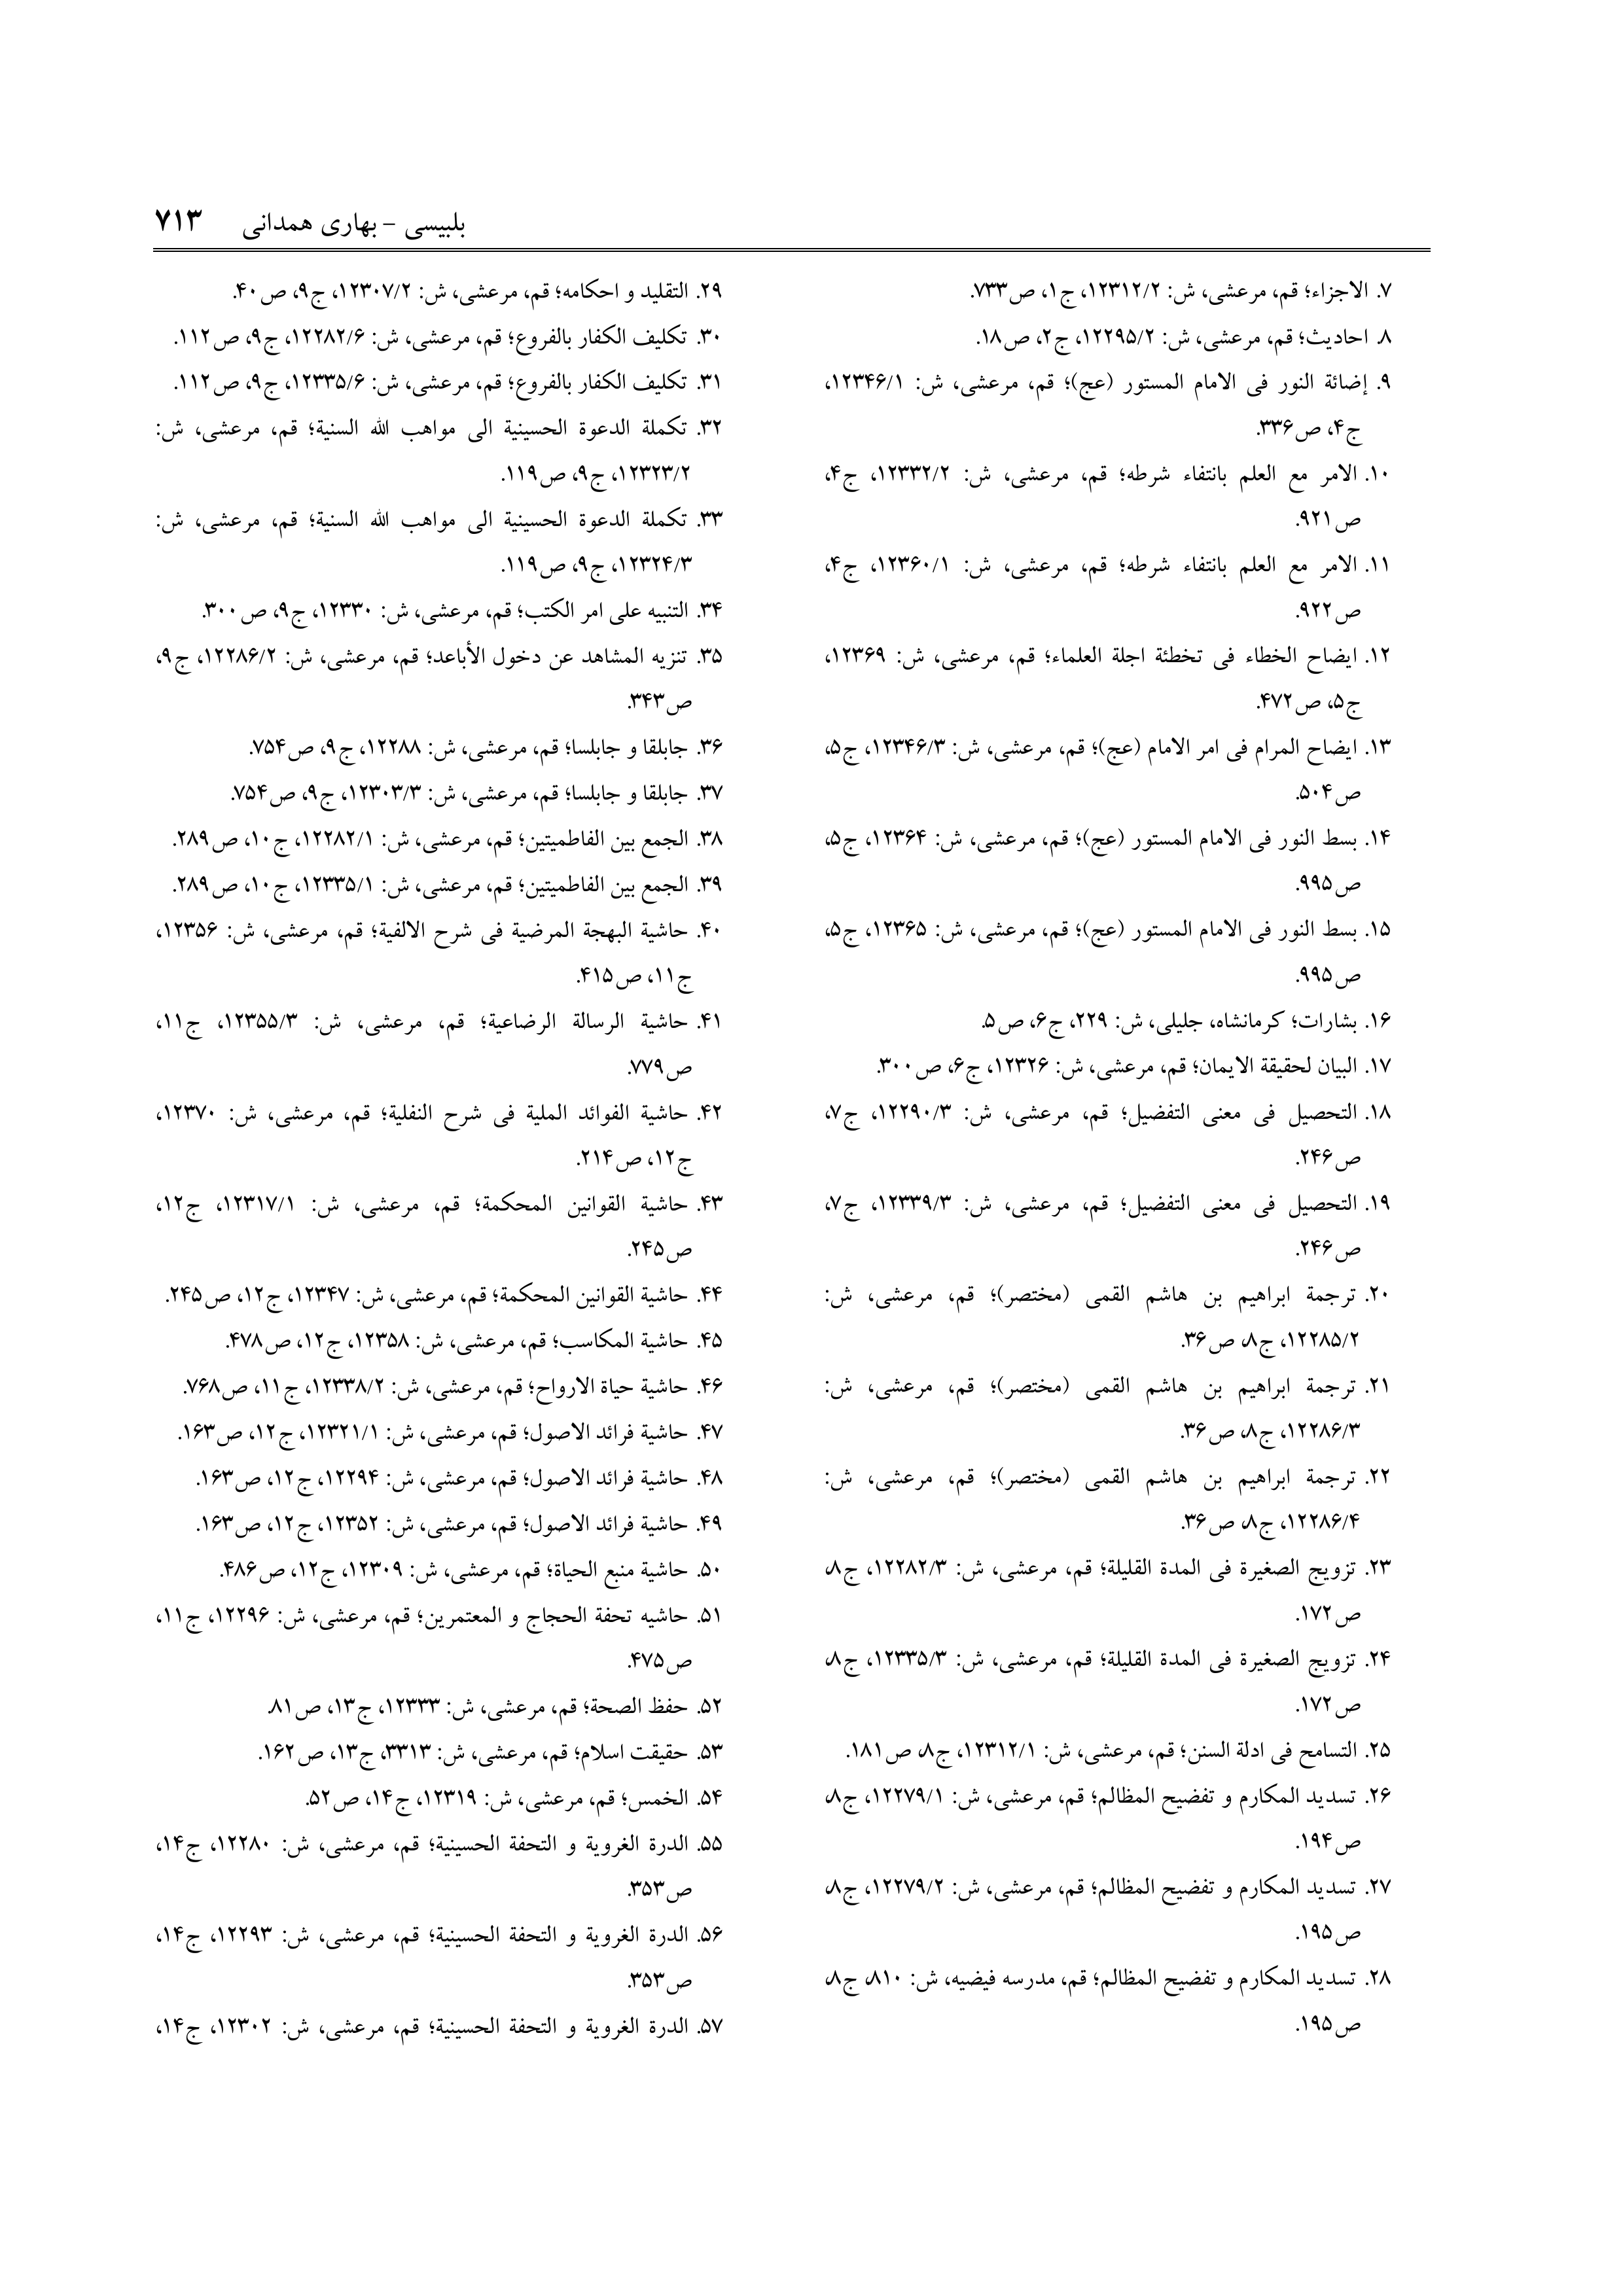 بلبیسی – بهاری همدانی ۷۱۳
۷. الاجزاء؛ قم، مرعشی، ش: ۱۲۳۱۲/۲، ج۱، ص۷۳۳.
۸. احادیث؛ قم، مرعشی، ش: ۱۲۲۹۵/۲، ج۲، ص۱۸.
۹. إضائة النور فی الامام المستور (عج)؛ قم، مرعشی، ش: ۱۲۳۴۶/۱،
ج۴، ص۳۳۶.
۱۰. الامر مع العلم بانتفاء شرطه؛ قم، مرعشی، ش: ۱۲۳۳۲/۲، ج۴،
ص۹۲۱.
۱۱. الامر مع العلم بانتفاء شرطه؛ قم، مرعشی، ش: ۱۲۳۶۰/۱، ج۴،
ص۹۲۲.
۱۲. ایضاح الخطاء فی تخطئة اجلة العلماء؛ قم، مرعشی، ش: ۱۲۳۶۹،
ج۵، ص۴۷۲.
۱۳. ایضاح المرام فی امر الامام (عج)؛ قم، مرعشی، ش: ۱۲۳۴۶/۳، ج۵،
ص۵۰۴.
۱۴. بسط النور فی الامام المستور (عج)؛ قم، مرعشی، ش: ۱۲۳۶۴، ج۵،
ص۹۹۵.
۱۵. بسط النور فی الامام المستور (عج)؛ قم، مرعشی، ش: ۱۲۳۶۵، ج۵،
ص۹۹۵.
۱۶. بشارات؛ کرمانشاه، جلیلی، ش: ۲۲۹، ج۶، ص۵.
۱۷. البیان لحقیقة الایمان؛ قم، مرعشی، ش: ۱۲۳۲۶، ج۶، ص۳۰۰.
۱۸. التحصیل فی معنی التفضیل؛ قم، مرعشی، ش: ۱۲۲۹۰/۳، ج۷،
ص۲۴۶.
۱۹. التحصیل فی معنی التفضیل؛ قم، مرعشی، ش: ۱۲۳۳۹/۳، ج۷،
ص۲۴۶.
۲۰. ترجمة ابراهیم بن هاشم القمی (مختصر)؛ قم، مرعشی، ش:
۱۲۲۸۵/۲، ج۸، ص۳۶.
۲۱. ترجمة ابراهیم بن هاشم القمی (مختصر)؛ قم، مرعشی، ش:
۱۲۲۸۶/۳، ج۸، ص۳۶.
۲۲. ترجمة ابراهیم بن هاشم القمی (مختصر)؛ قم، مرعشی، ش:
۱۲۲۸۶/۴، ج۸، ص۳۶.
۲۳. تزویج الصغیرة فی المدة القلیلة؛ قم، مرعشی، ش: ۱۲۲۸۲/۳، ج۸،
ص۱۷۲.
۲۴. تزویج الصغیرة فی المدة القلیلة؛ قم، مرعشی، ش: ۱۲۳۳۵/۳، ج۸،
ص۱۷۲.
۲۵. التسامح فی ادلة السنن؛ قم، مرعشی، ش: ۱۲۳۱۲/۱، ج۸، ص۱۸۱.
۲۶. تسدید المکارم و تفضیح المظالم؛ قم، مرعشی، ش: ۱۲۲۷۹/۱، ج۸،
ص۱۹۴.
۲۷. تسدید المکارم و تفضیح المظالم؛ قم، مرعشی، ش: ۱۲۲۷۹/۲، ج۸،
ص۱۹۵.
۲۸. تسدید المکارم و تفضیح المظالم؛ قم، مدرسه فیضیه، ش: ۸۱۰، ج۸،
ص۱۹۵.
۲۹. التقلید و احکامه؛ قم، مرعشی، ش: ۱۲۳۰۷/۲، ج۹، ص۴۰.
۳۰. تکلیف الکفار بالفروع؛ قم، مرعشی، ش: ۱۲۲۸۲/۶، ج۹، ص۱۱۲.
۳۱. تکلیف الکفار بالفروع؛ قم، مرعشی، ش: ۱۲۳۳۵/۶، ج۹، ص۱۱۲.
۳۲. تکملة الدعوة الحسینیة الی مواهب الله السنیة؛ قم، مرعشی، ش:
۱۲۳۲۳/۲، ج۹، ص۱۱۹.
۳۳. تکملة الدعوة الحسینیة الی مواهب الله السنیة؛ قم، مرعشی، ش:
۱۲۳۲۴/۳، ج۹، ص۱۱۹.
۳۴. التنبیه علی امر الکتب؛ قم، مرعشی، ش: ۱۲۳۳۰، ج۹، ص۳۰۰.
۳۵. تنزیه المشاهد عن دخول الأباعد؛ قم، مرعشی، ش: ۱۲۲۸۶/۲، ج۹،
ص۳۴۳.
۳۶. جابلقا و جابلسا؛ قم، مرعشی، ش: ۱۲۲۸۸، ج۹، ص۷۵۴.
۳۷. جابلقا و جابلسا؛ قم، مرعشی، ش: ۱۲۳۰۳/۳، ج۹، ص۷۵۴.
۳۸. الجمع بین الفاطمیتین؛ قم، مرعشی، ش: ۱۲۲۸۲/۱، ج۱۰، ص۲۸۹.
۳۹. الجمع بین الفاطمیتین؛ قم، مرعشی، ش: ۱۲۳۳۵/۱، ج۱۰، ص۲۸۹.
۴۰. حاشیة البهجة المرضیة فی شرح الالفیة؛ قم، مرعشی، ش: ۱۲۳۵۶،
ج۱۱، ص۴۱۵.
۴۱. حاشیة الرسالة الرضاعیة؛ قم، مرعشی، ش: ۱۲۳۵۵/۳، ج۱۱،
ص۷۷۹.
۴۲. حاشیة الفوائد الملیة فی شرح النفلیة؛ قم، مرعشی، ش: ۱۲۳۷۰،
ج۱۲، ص۲۱۴.
۴۳. حاشیة القوانین المحکمة؛ قم، مرعشی، ش: ۱۲۳۱۷/۱، ج۱۲،
ص۲۴۵.
۴۴. حاشیة القوانین المحکمة؛ قم، مرعشی، ش: ۱۲۳۴۷، ج۱۲، ص۲۴۵.
۴۵. حاشیة المکاسب؛ قم، مرعشی، ش: ۱۲۳۵۸، ج۱۲، ص۴۷۸.
۴۶. حاشیة حیاة الارواح؛ قم، مرعشی، ش: ۱۲۳۳۸/۲، ج۱۱، ص۷۶۸.
۴۷. حاشیة فرائد الاصول؛ قم، مرعشی، ش: ۱۲۳۲۱/۱، ج۱۲، ص۱۶۳.
۴۸. حاشیة فرائد الاصول؛ قم، مرعشی، ش: ۱۲۲۹۴، ج۱۲، ص۱۶۳.
۴۹. حاشیة فرائد الاصول؛ قم، مرعشی، ش: ۱۲۳۵۲، ج۱۲، ص۱۶۳.
۵۰. حاشیة منبع الحیاة؛ قم، مرعشی، ش: ۱۲۳۰۹، ج۱۲، ص۴۸۶.
۵۱. حاشیه تحفة الحجاج و المعتمرین؛ قم، مرعشی، ش: ۱۲۲۹۶، ج۱۱،
ص۴۷۵.
۵۲. حفظ الصحة؛ قم، مرعشی، ش: ۱۲۳۳۳، ج۱۳، ص۸۱.
۵۳. حقیقت اسلام؛ قم، مرعشی، ش: ۳۳۱۳، ج۱۳، ص۱۶۲.
۵۴. الخمس؛ قم، مرعشی، ش: ۱۲۳۱۹، ج۱۴، ص۵۲.
۵۵. الدرة الغرویة و التحفة الحسینیة؛ قم، مرعشی، ش: ۱۲۲۸۰، ج۱۴،
ص۳۵۳.
۵۶. الدرة الغرویة و التحفة الحسینیة؛ قم، مرعشی، ش: ۱۲۲۹۳، ج۱۴،
ص۳۵۳.
۵۷. الدرة الغرویة و التحفة الحسینیة؛ قم، مرعشی، ش: ۱۲۳۰۲، ج۱۴،